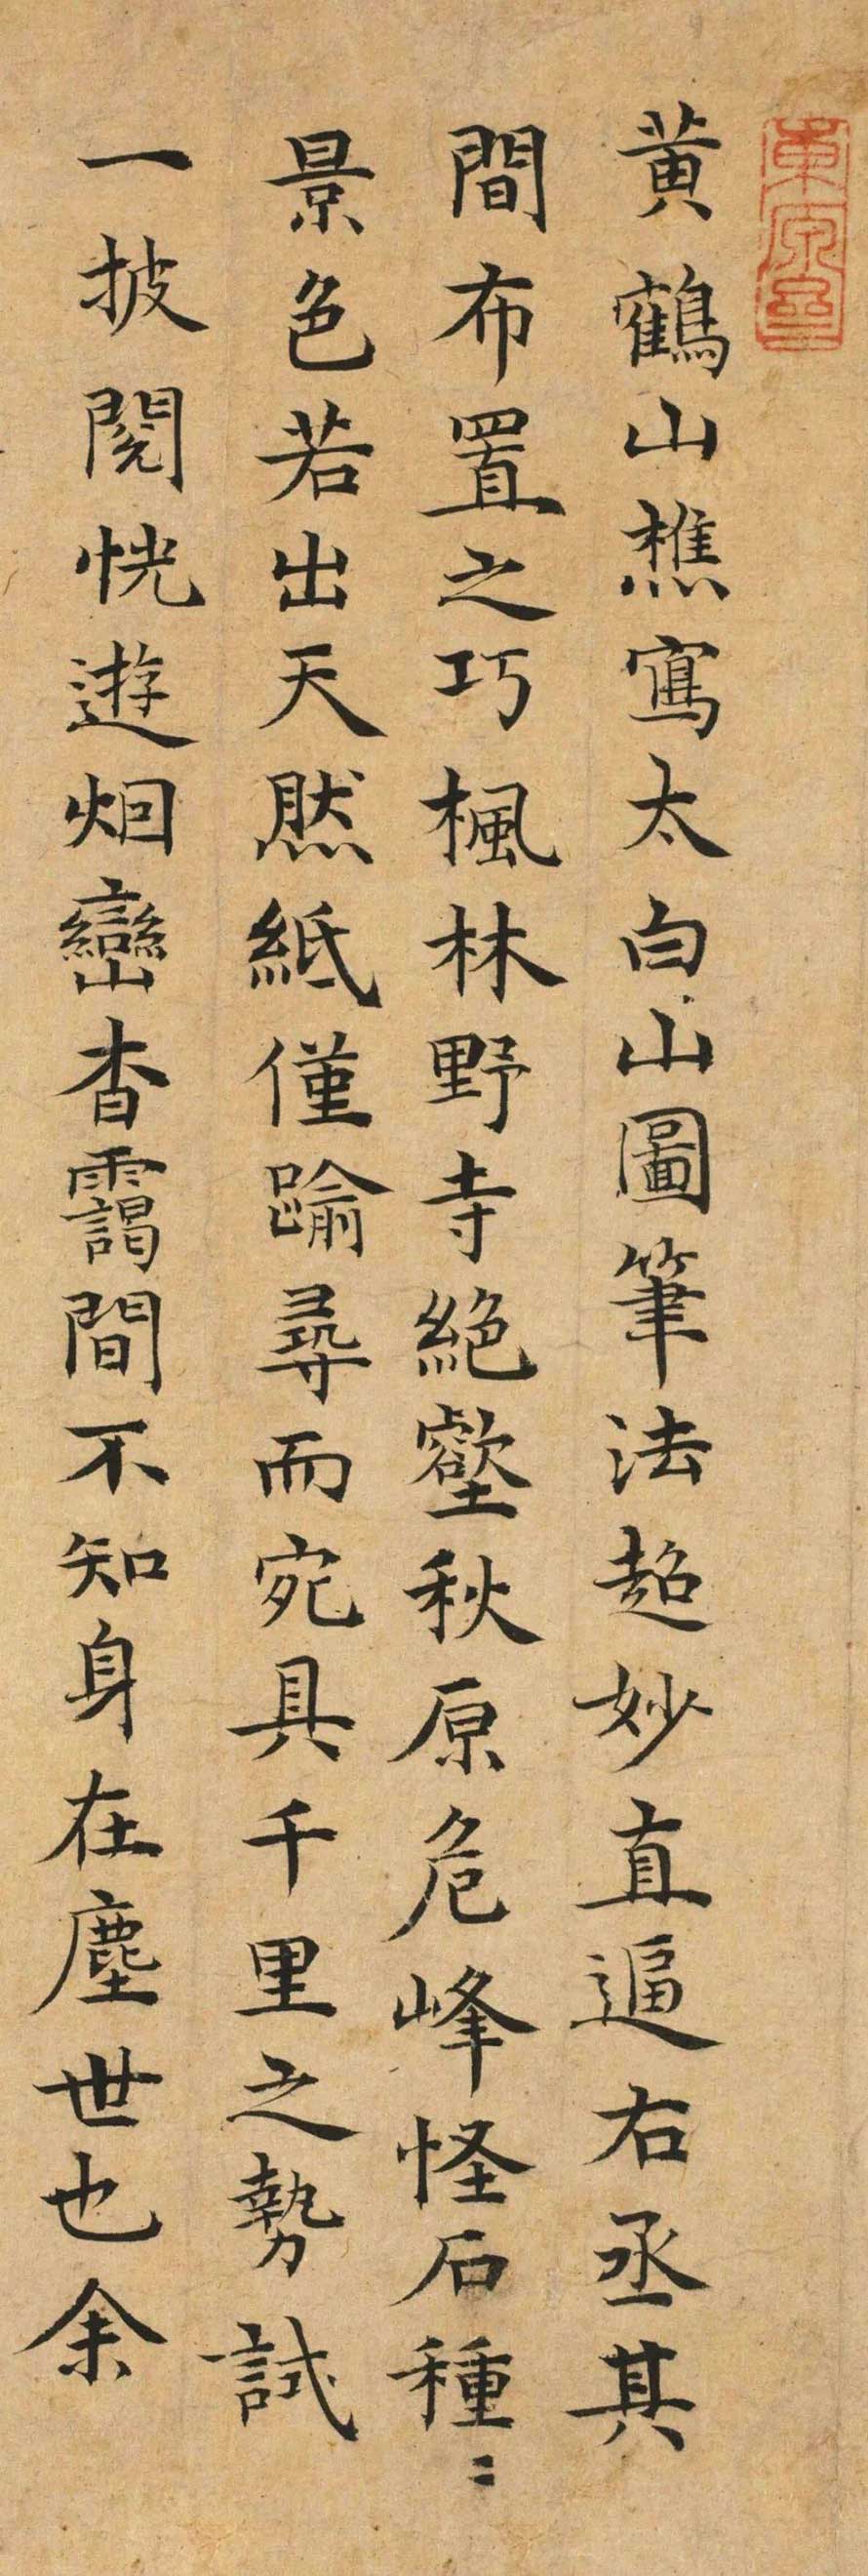 黄鶴山樵寫太白山圖筆法超妙直逼右丞其
間布置之巧楓林野寺絕壑秋原危峰怪石種〻
景色若出天然紙僅踰尋而宛具千里之勢試
一披閱恍遊烟巒杳靄間不知身在塵世也余